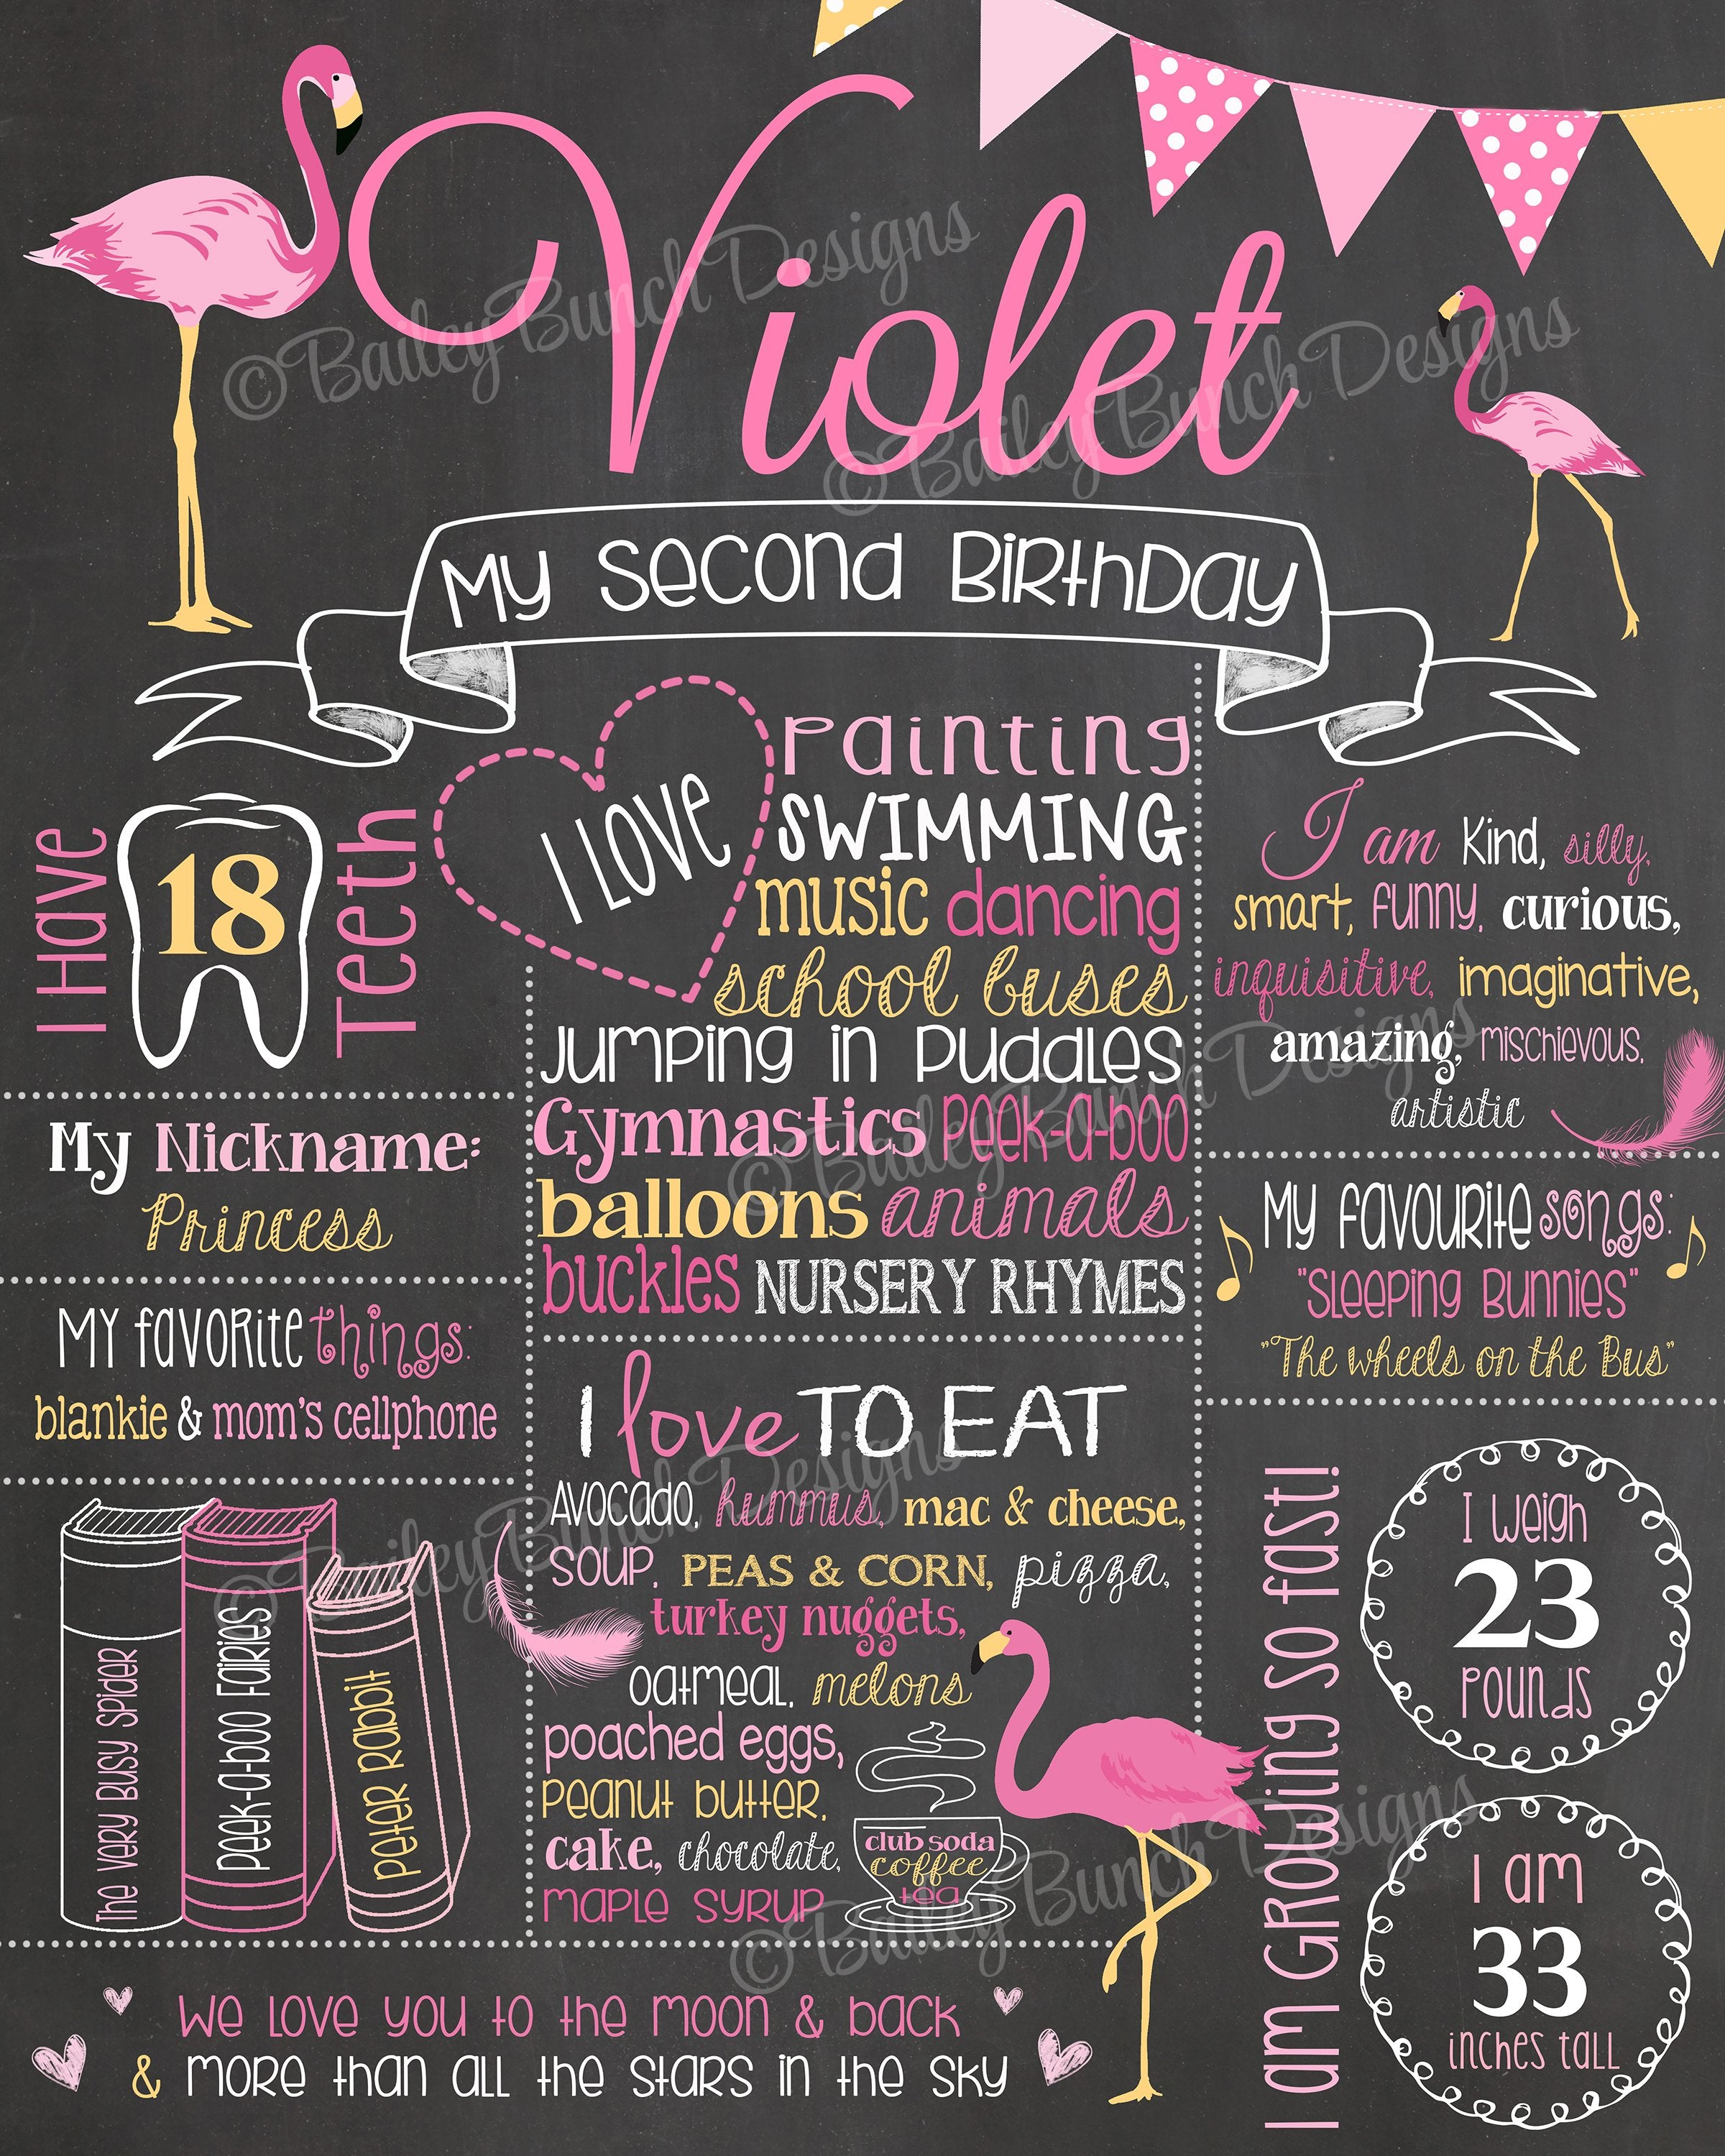 Violet
My Second Birthday
I Have
18
Teeth
My Nickname:
Princess
My favorite things:
blankie & mom's cellphone
The Very Busy Spider
Peek-a-boo Fairies
Peter Rabbit
I LOVE
Painting
SWIMMING
music dancing
school buses
Jumping in Puddles
Gymnastics Peek-a-boo
balloons animals
buckles NURSERY RHYMES
I love TO EAT
Avocado, hummus, mac & cheese,
soup, PEAS & CORN, pizza,
turkey nuggets,
oatmeal, melons
poached eggs,
peanut butter,
cake, chocolate,
maple syrup
club soda
coffee
tea
I am Kind, silly,
smart, funny, curious,
inquisitive, imaginative,
amazing, mischievous,
artistic
My favourite songs:
"Sleeping Bunnies"
"The wheels on the Bus"
I am Growing so fast!
I weigh
23
pounds
I am
33
inches tall
We love you to the moon & back
& more than all the stars in the sky
©Bailey Bunch Designs
©Bailey Bunch Designs
©Bailey Bunch Designs
©Bailey Bunch Designs
©Bailey Bunch Designs